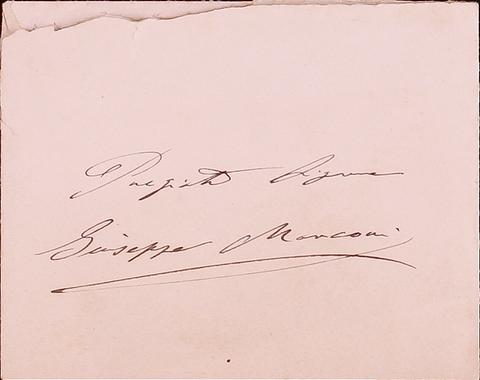 Pregiat Signore
Giuseppe Marconi